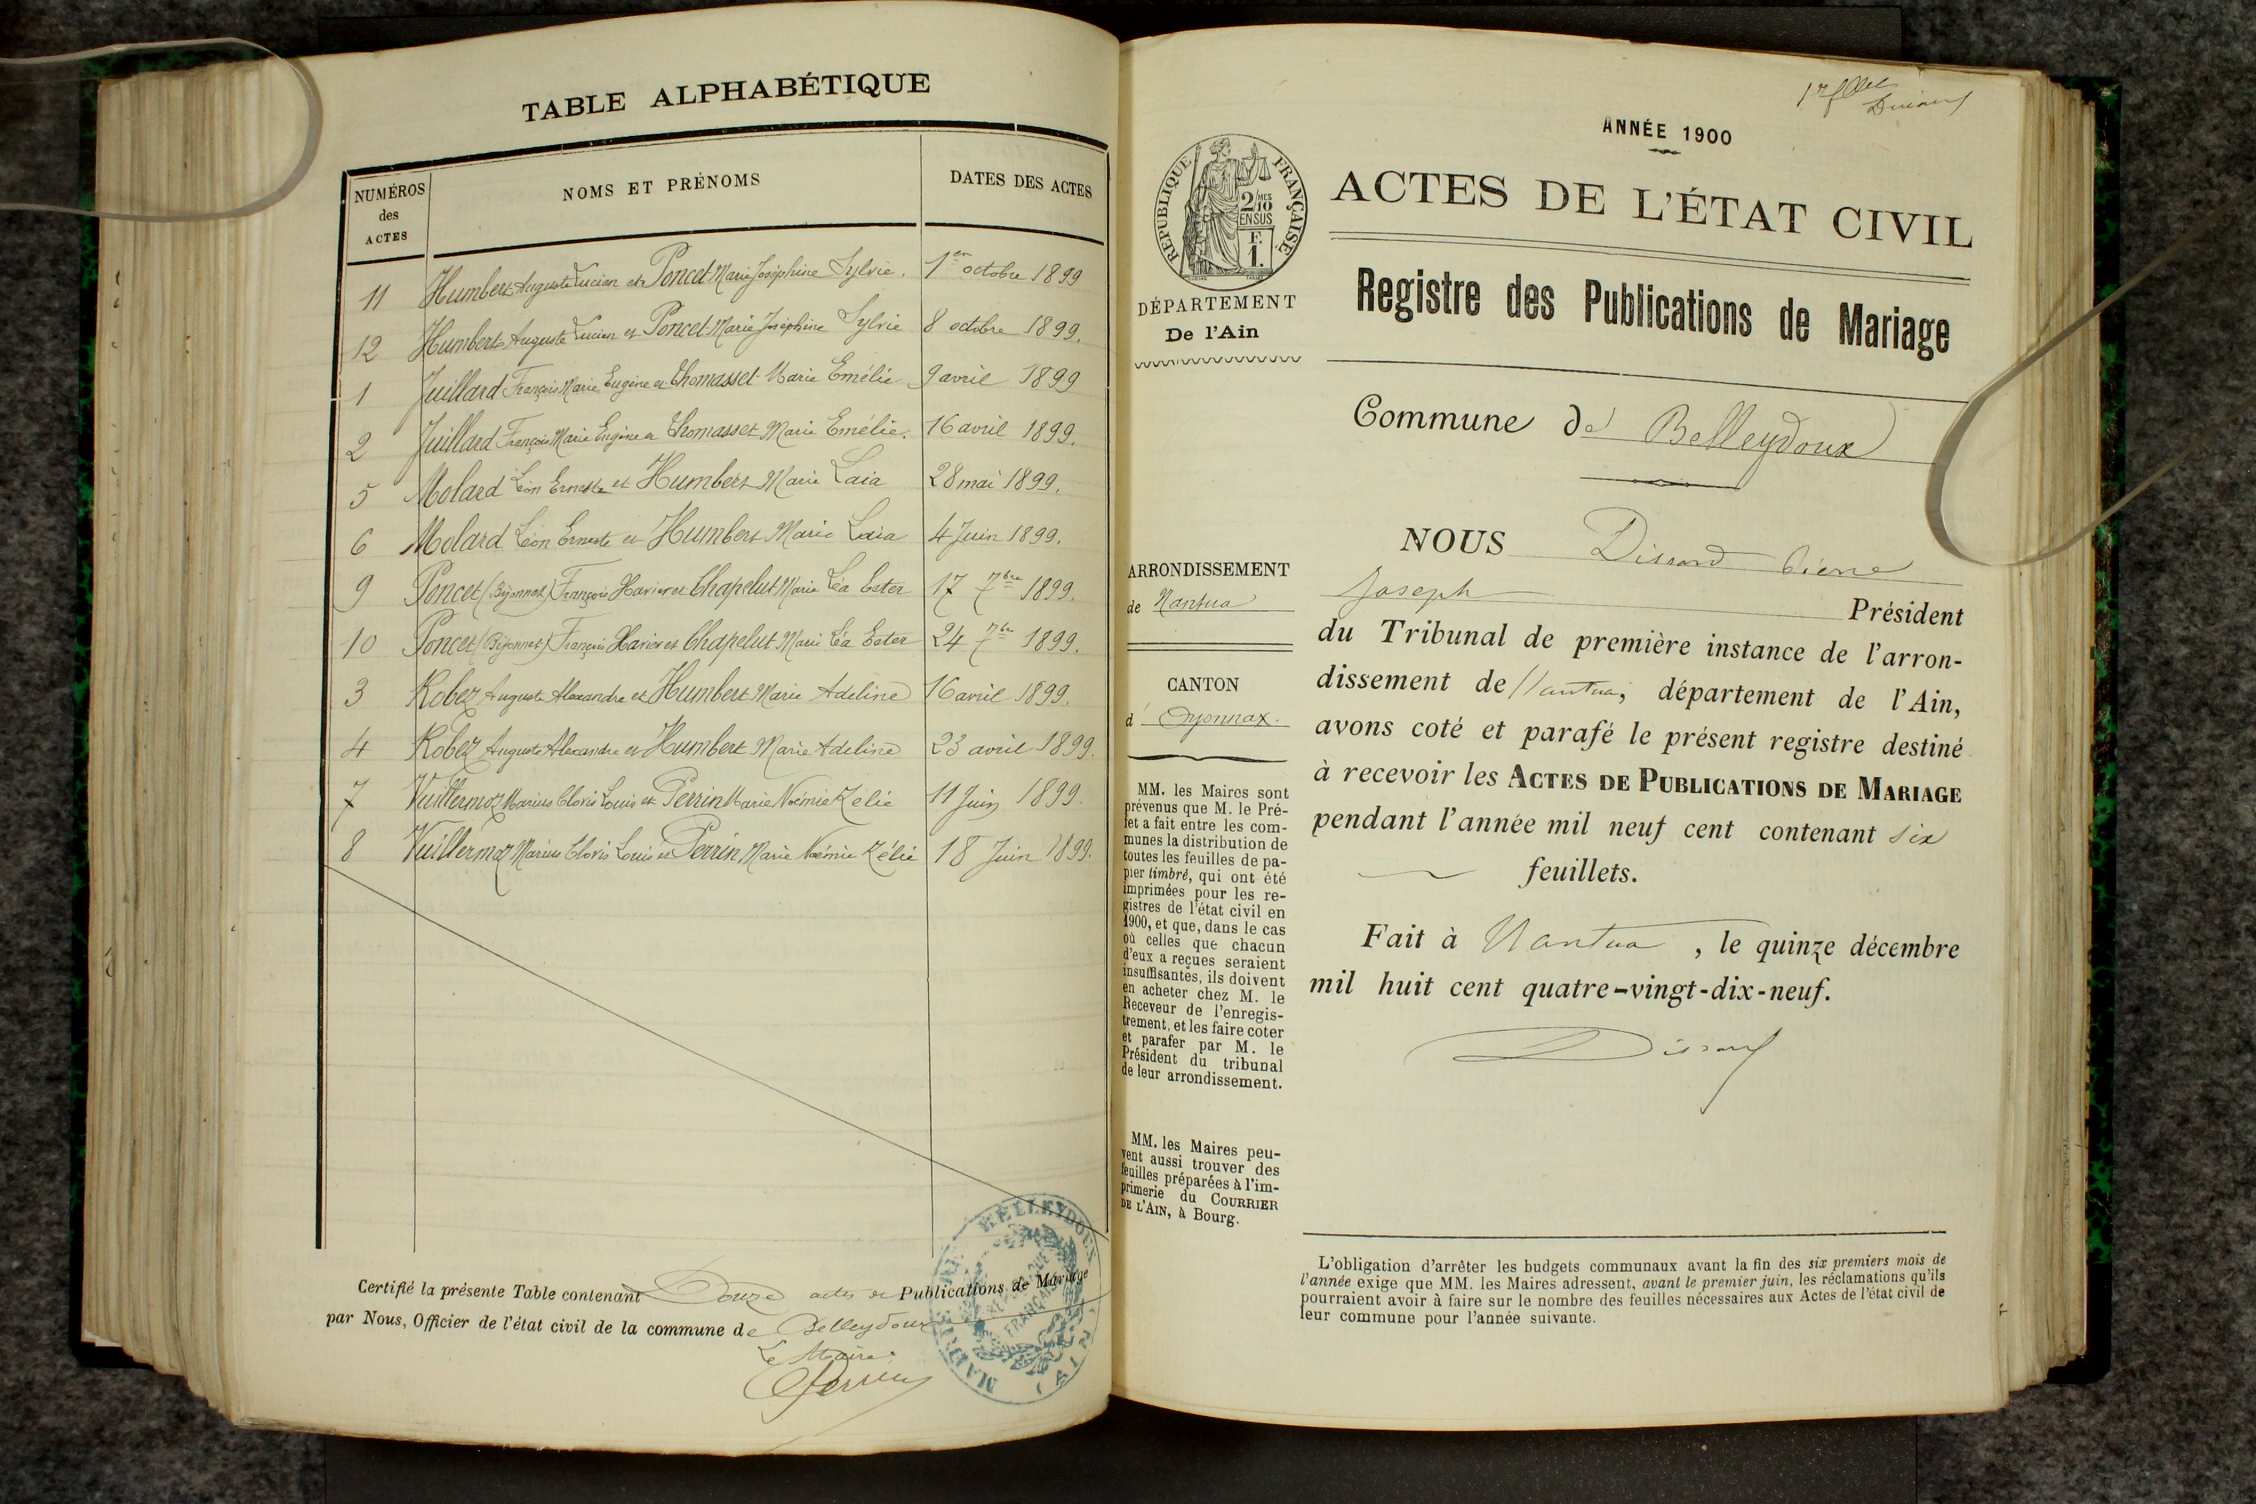 TABLE ALPHABÉTIQUE
NUMÉROS des ACTES
NOMS ET PRÉNOMS
DATES DES ACTES
11 Humbert Auguste Lucien et Poncet Marie Joséphine Sylvie. 1er octobre 1899
12 Humbert Auguste Lucien et Poncet Marie Joséphine Sylvie 8 octobre 1899.
1 Juillard François Marie Eugène et Thomasset Marie Emélie 9 avril 1899
2 Juillard François Marie Eugène et Thomasset Marie Emélie. 16 avril 1899.
5 Molard Léon Erneste et Humbert Marie Laïa 28 mai 1899.
6 Molard Léon Erneste et Humbert Marie Laïa 4 Juin 1899.
9 Poncet (Bijonnet) François Xavier et Chapelut Marie Léa Ester 17 7bre 1899.
10 Poncet (Bijonnet) François Xavier et Chapelut Marie Léa Ester 24 7bre 1899.
3 Robez Auguste Alexandre et Humbert Marie Adeline 16 avril 1899.
4 Robez Auguste Alexandre et Humbert Marie Adeline 23 avril 1899.
7 Vuillermoz Marius Clovis Louis et Perrin Marie Noémie Zélie 11 Juin 1899.
8 Vuillermoz Marius Clovis Louis et Perrin Marie Noémie Zélie 18 Juin 1899.
Certifié la présente Table contenant Douze actes de Publications de Mariage
par Nous, Officier de l'état civil de la commune de Belleydoux
Le Maire.
Perrin
MAIRIE DE BELLEYDOUX (AIN)
RÉPUBLIQUE FRANÇAISE
1er fllet
Dissard
ANNÉE 1900
RÉPUBLIQUE FRANÇAISE
2/10 MES
EN SUS
F.
1.
ACTES DE L'ÉTAT CIVIL
Registre des Publications de Mariage
DÉPARTEMENT
De l'Ain
Commune de Belleydoux
ARRONDISSEMENT
de Nantua
CANTON
d' Oyonnax.
MM. les Maires sont
prévenus que M. le Pré-
fet a fait entre les com-
munes la distribution de
toutes les feuilles de pa-
pier timbré, qui ont été
imprimées pour les re-
gistres de l'état civil en
1900, et que, dans le cas
où celles que chacun
d'eux a reçues seraient
insuffisantes, ils doivent
en acheter chez M. le
Receveur de l'enregis-
trement, et les faire coter
et parafer par M. le
Président du tribunal
de leur arrondissement.
MM. les Maires peu-
vent aussi trouver des
feuilles préparées à l'im-
primerie du COURRIER
DE L'AIN, à Bourg.
NOUS Dissard Pierre
Joseph Président
du Tribunal de première instance de l'arron-
dissement de Nantua, département de l'Ain,
avons coté et parafé le présent registre destiné
à recevoir les ACTES DE PUBLICATIONS DE MARIAGE
pendant l'année mil neuf cent contenant six
feuillets.
Fait à Nantua, le quinze décembre
mil huit cent quatre-vingt-dix-neuf.
Dissard
L'obligation d'arrêter les budgets communaux avant la fin des six premiers mois de
l'année exige que MM. les Maires adressent, avant le premier juin, les réclamations qu'ils
pourraient avoir à faire sur le nombre des feuilles nécessaires aux Actes de l'état civil de
leur commune pour l'année suivante.